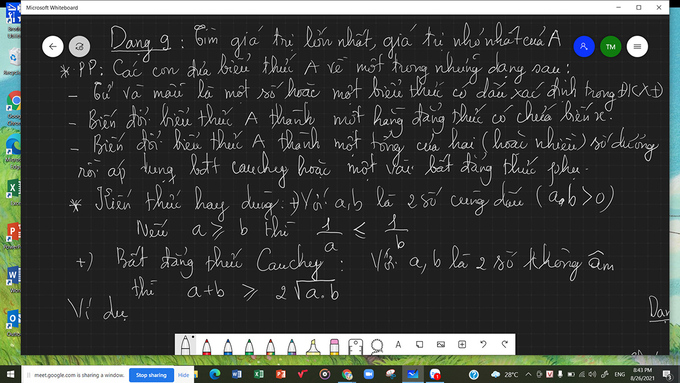 Microsoft Whiteboard
Dạng 9: Tìm giá trị lớn nhất, giá trị nhỏ nhất của A
* PP: Các con đưa biểu thức A về một trong những dạng sau:
- Tử và mẫu là một số hoặc một biểu thức có dấu xác định trong ĐKXĐ
- Biến đổi biểu thức A thành một hằng đẳng thức có chứa biến x.
- Biến đổi biểu thức A thành một tổng của hai (hoặc nhiều) số dương
rồi áp dụng bđt cauchey hoặc một vài bất đẳng thức phụ.
* Kiến thức hay dùng: +) Với a, b là 2 số cùng dấu (a.b > 0)
Nếu a ≥ b thì 1/a ≤ 1/b
+) Bất đẳng thức Cauchey: Với a, b là 2 số không âm
thì a+b ≥ 2√a.b
Ví dụ
Dạn
TM
A
meet.google.com is sharing a window.
Stop sharing
Hide
28°C
8:43 PM
8/26/2021